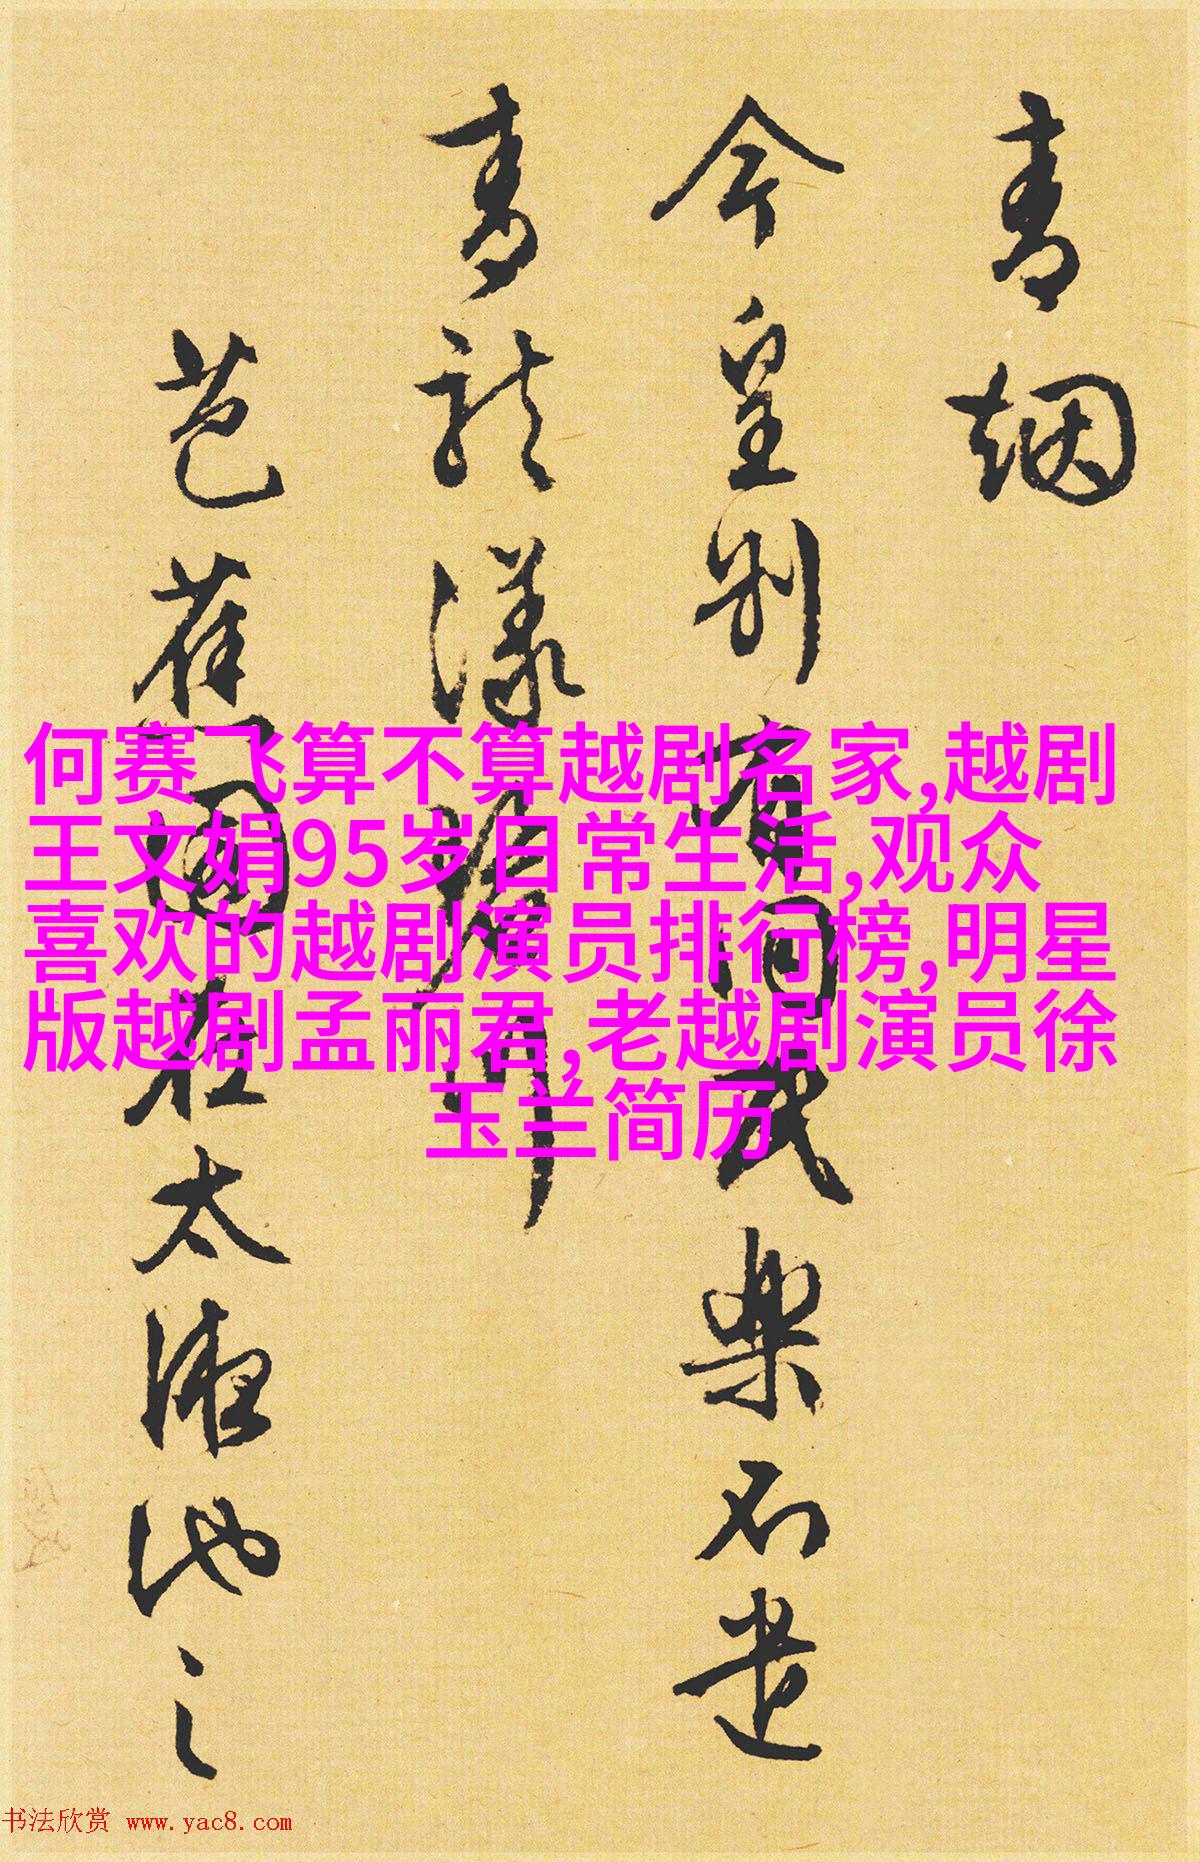 青烟
今皇别有同
樂石迷
青龍漾
芭蕉園在太液池之
何赛飞算不算越剧名家,越剧
王文娟95岁日常生活,观众
喜欢的越剧演员排行榜,明星
版越剧孟丽君,老越剧演员徐
玉兰简历
书法欣赏 www.yac8.com